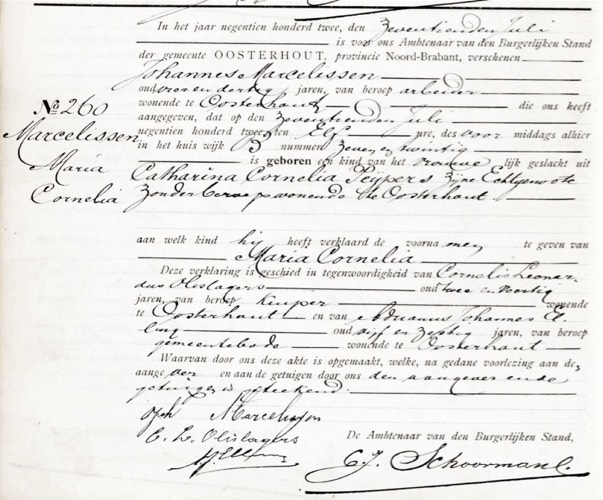 In het jaar negentien honderd twee, den Zeventienden Juli
is voor ons Ambtenaar van den Burgerlijken Stand
der gemeente OOSTERHOUT, provincie Noord-Brabant, verschenen
Johannes Marcelissen
oud vier en dertig jaren, van beroep arbeider
wonende te Oosterhout die ons heeft
aangegeven, dat op den Zeventienden Juli
negentien honderd twee ten Elf ure, des voor middags alhier
in het huis wijk nummer Zeven en twintig
is geboren een kind van het vrouwe lijk geslacht uit
Catharina Cornelia Peijpers Zijne Echtgenoote
Zonder beroep wonende te Oosterhout
No 260
Marcelissen
Maria
Cornelia
aan welk kind hij heeft verklaard de voorna men te geven van
Maria Cornelia
Deze verklaring is geschied in tegenwoordigheid van Cornelis Leonar-
dus Olislagers oud twee en veertig
jaren, van beroep Kuiper wonende
te Oosterhout en van Adrianus Johannes El-
ling oud vijf en Zestig jaren, van beroep
gemeentebode wonende te Oosterhout
Waarvan door ons deze akte is opgemaakt, welke, na gedane voorlezing aan de,
aange ver en aan de getuigen door ons den aangever en de
getuigen is geteekend.
Joh Marcelissen
C. L. Olislagers
De Ambtenaar van den Burgerlijken Stand,
C. J. Schoorman